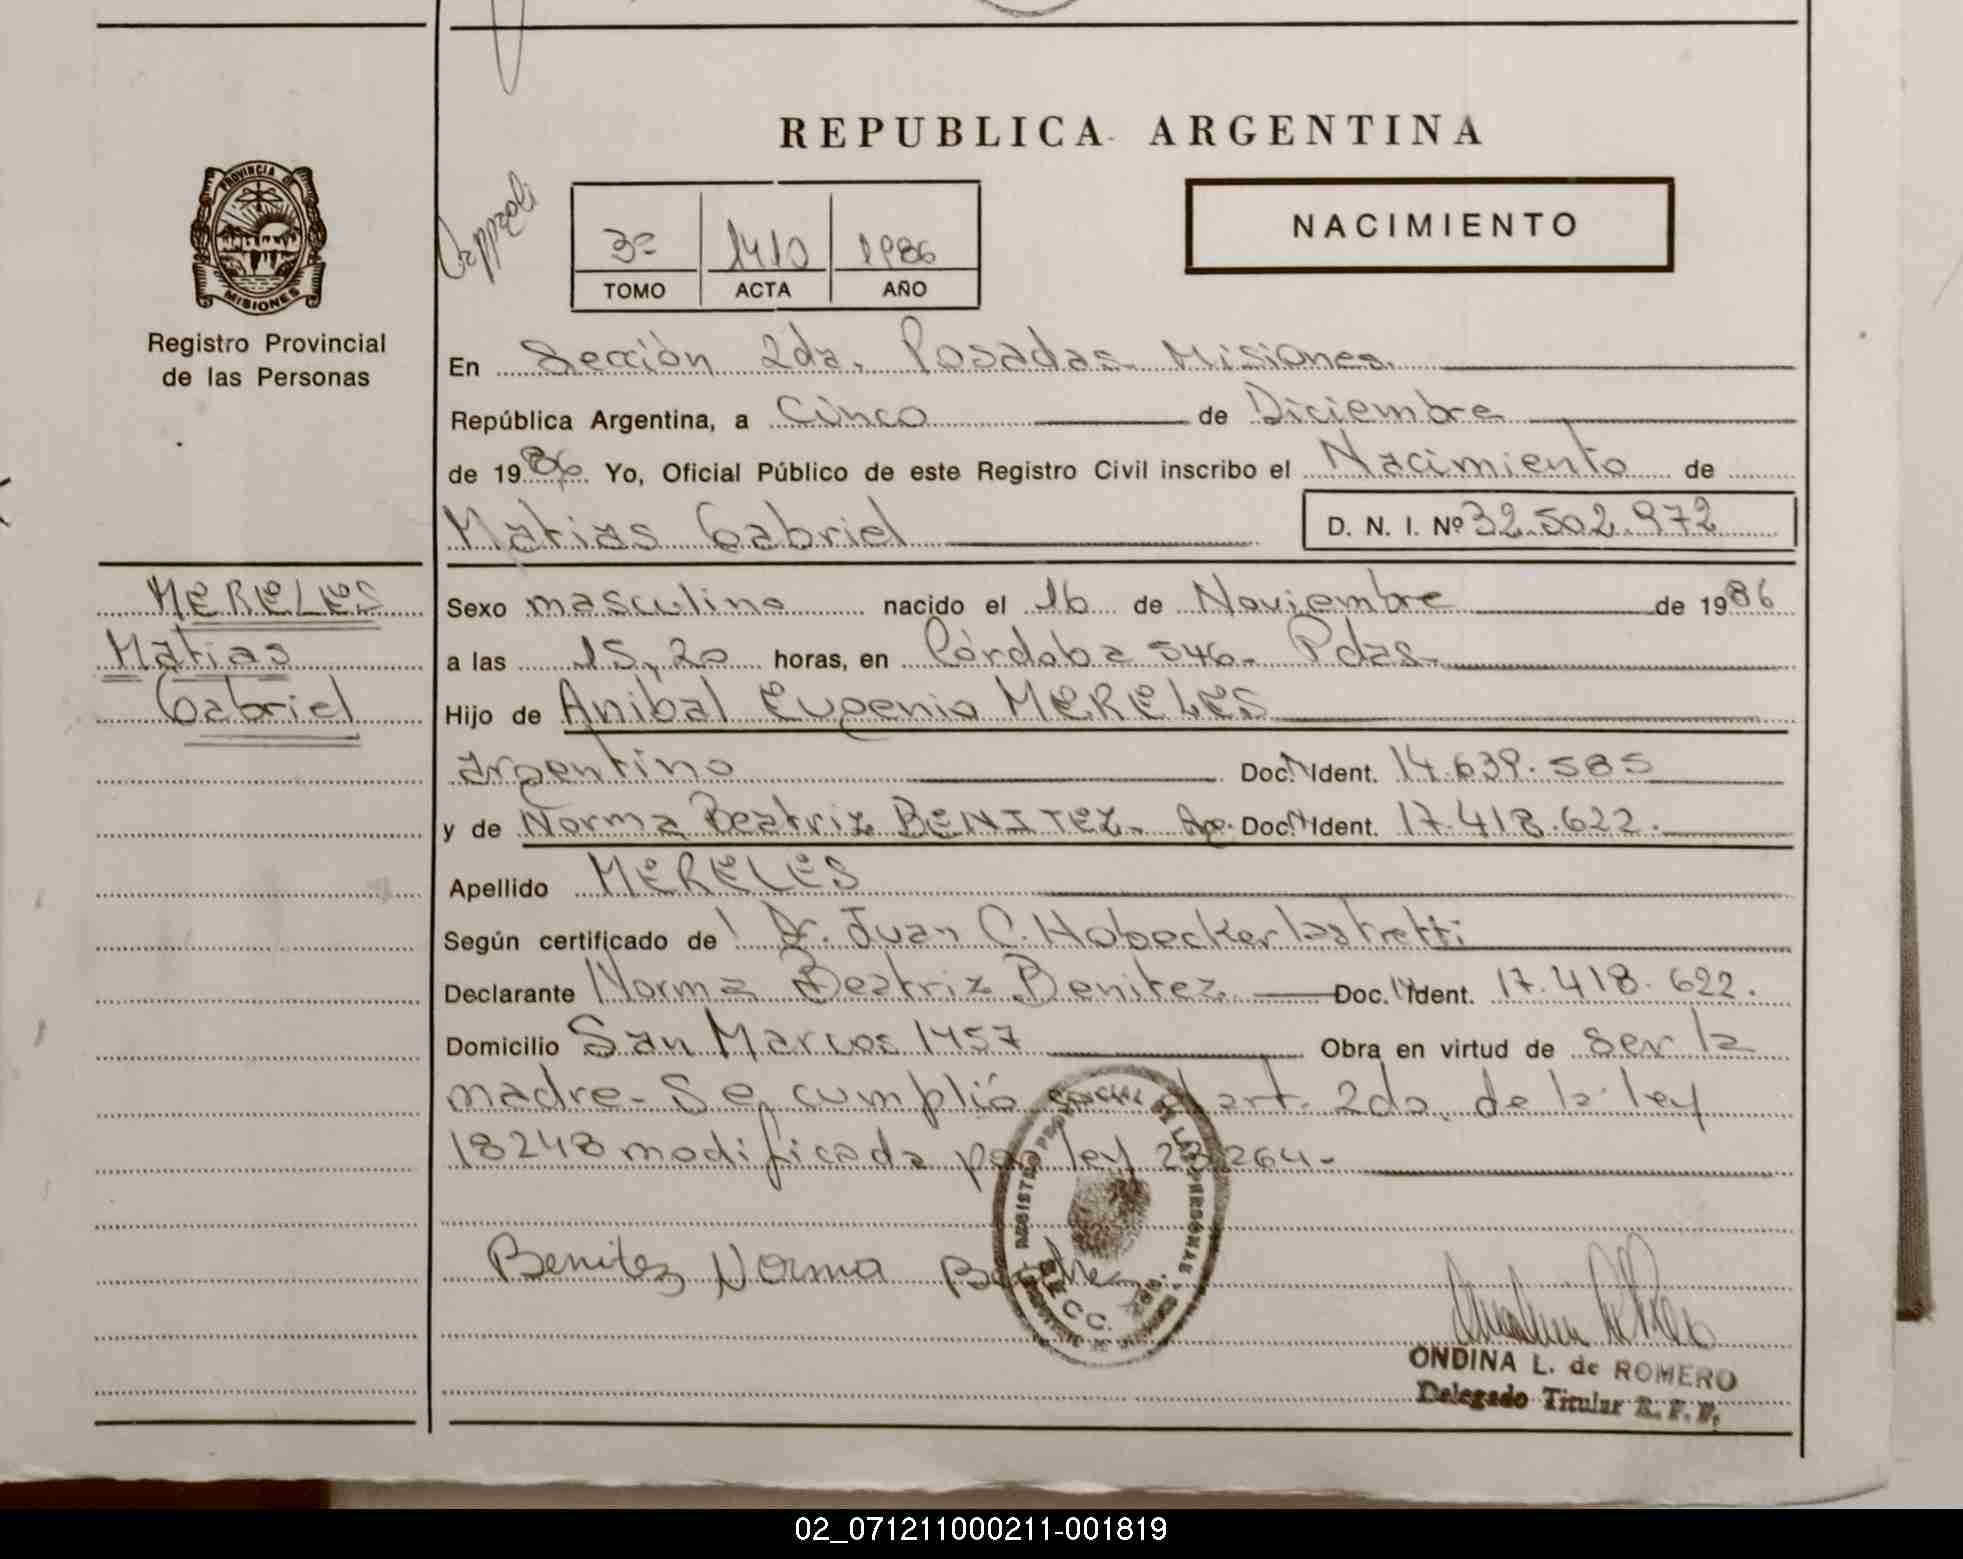 REPUBLICA ARGENTINA
PROVINCIA DE
MISIONES
Registro Provincial
de las Personas
3º 1410 1986
TOMO ACTA AÑO
NACIMIENTO
En Sección 2da. Posadas Misiones.
República Argentina, a Cinco de Diciembre
de 1986 Yo, Oficial Público de este Registro Civil inscribo el Nacimiento de
Matias Gabriel D. N. I. Nº 32.502.972
MERELES
Matias
Gabriel
Sexo masculino nacido el 16 de Noviembre de 1986
a las 15,20 horas, en Córdoba 546- Pdas-
Hijo de Anibal Eugenio MERELES
argentino Doc. Ident. 14.639.585
y de Norma Beatriz BENITEZ- Doc. Ident. 17.418.622.
Apellido MERELES
Según certificado de Dr. Juan C. Hobecker lastretti
Declarante Norma Beatriz Benitez Doc. Ident. 17.418.622.
Domicilio San Marcos 1457 Obra en virtud de ser la
madre- Se cumplió art. 2do. de la ley
18248 modificada por ley 23264-
Benitez Norma
ONDINA L. de ROMERO
Delegado Titular R. P. P.
02_071211000211-001819